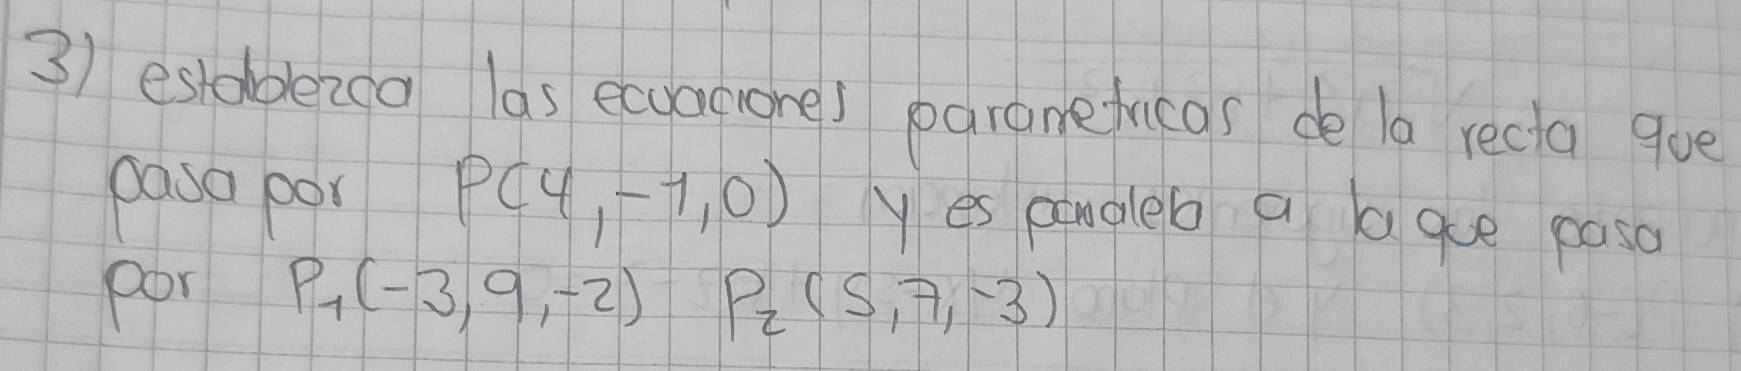 3) establezca las ecuaciones parametricas de la recta que
pasa por P(4,-1,0) y es paralela a la que pasa
por P₁(-3,9,-2) P₂(5,7,-3)